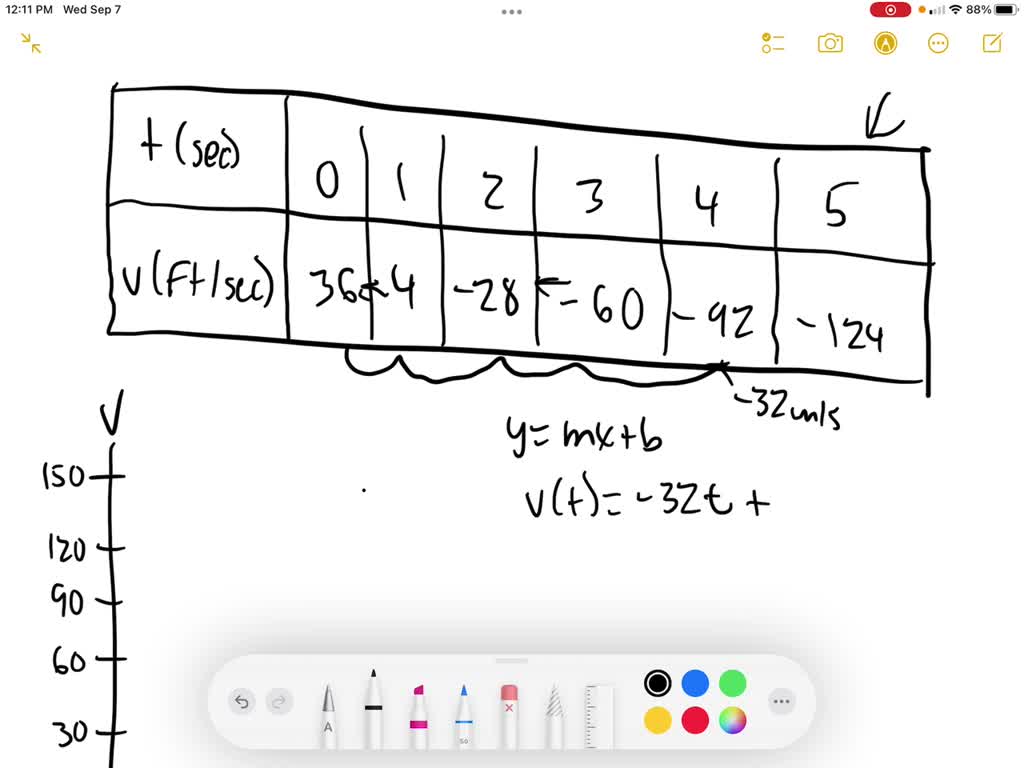 12:11 PM Wed Sep 7 88%
t (sec) 0 1 2 3 4 5
v (ft/sec) 36 4 -28 -60 -92 -124
-32 m/s
V
y = mx+b
150
v(t) = -32t +
120
90
60
30
A
50